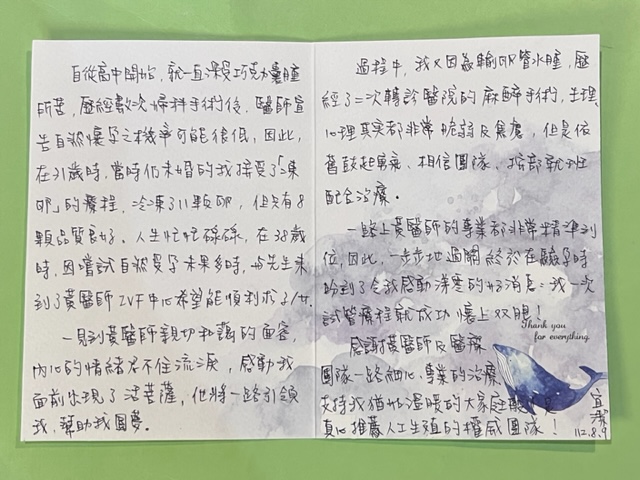 自從高中開始,就一直深受巧克力囊腫
所苦,歷經數次婦科手術後,醫師宣
告自然懷孕之機率可能很低,因此,
在31歲時,當時仍未婚的我接受了「凍
卵」的療程,冷凍了11顆卵,但只有8
顆品質良好。人生忙忙碌碌,在38歲
時,因嘗試自然受孕未果多時,與先生來
到了黃醫師IVF中心希望能順利求子/女。
一見到黃醫師親切和藹的面容,
內心的情緒忍不住流淚,感動我
面前出現了活菩薩,他將一路引領
我,幫助我圓夢。
過程中,我又因為輸卵管水腫,歷
經了二次轉診醫院的麻醉手術,生理、
心理真實都非常脆弱及焦慮,但是依
舊鼓起勇氣、相信團隊、按部就班
配合治療。
一路上黃醫師的專業都非常精準到
位,因此,一步步地過關終於在驗孕時
盼到了令我感動落淚的好消息:我一次
試管療程就成功懷上双胞!
Thank you
for everything.
感謝黃醫師及醫療
團隊一路細心、專業的治療,
支持我猶如溫暖的大家庭
真心推薦人工生殖的權威團隊!
宜潔
112.8.9